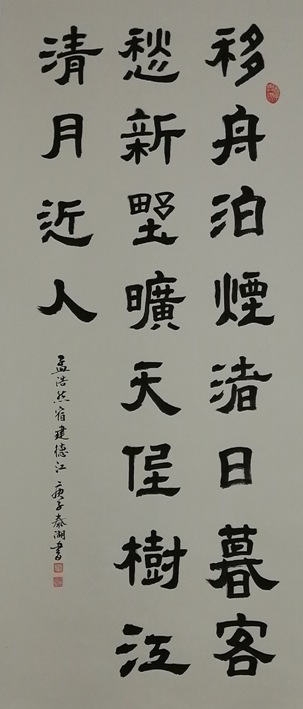 移舟泊煙渚日暮客
愁新野曠天低樹江
清月近人
孟浩然宿建德江 庚子秦湖書